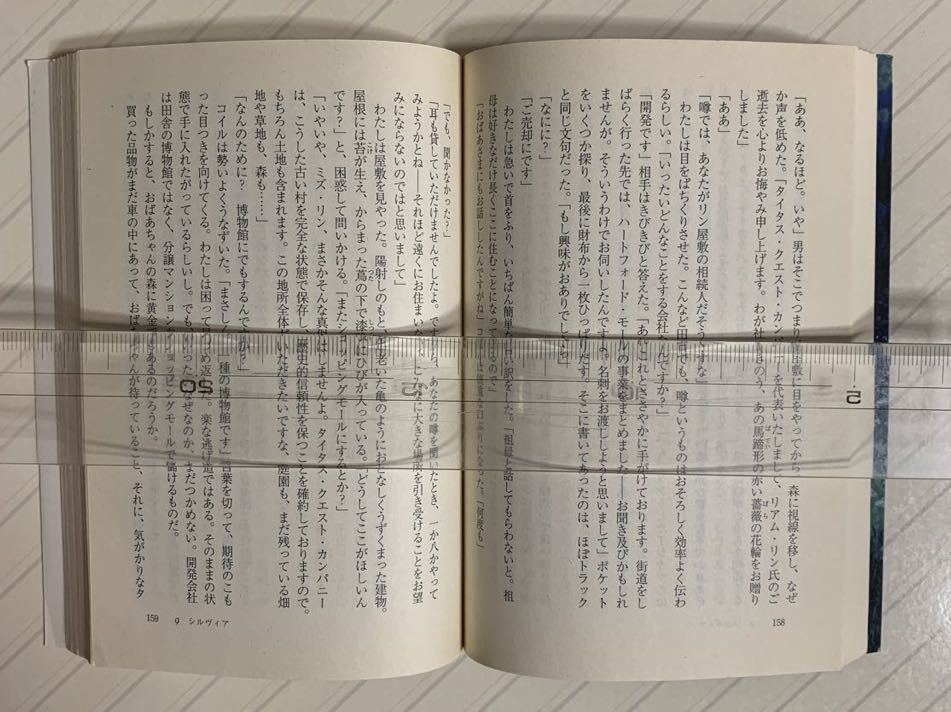 「ああ、なるほど。いや」男はそこでつまり、屋敷に目をやってから、森に視線を移し、なぜ
か声を低めた。「タイタス・クエスト・カンパニーを代表いたしまして、リアム・リン氏のご
逝去を心よりお悔やみ申し上げます。わが社もきのう、あの馬蹄形の赤い薔薇の花輪をお贈り
しました」
「ああ」
「噂では、あなたがリン屋敷の相続人だそうですな」
わたしは目をぱちくりさせた。こんなど田舎でも、噂というものはおそろしく効率よく伝わ
るらしい。「いったいどんなことをする会社なんですか?」
「開発です」相手はきびきびと答えた。「あれこれとささやかに手がけております。街道をし
ばらく行った先では、ハートフォード・モールの事業をまとめました――お聞き及びかもしれ
ませんが。そういうわけでお伺いしたんですよ。名刺をお渡ししようと思いまして」ポケット
をいくつか探り、最後に財布から一枚ひっぱりだす。そこに書いてあったのは、ほぼトラック
と同じ文句だった。「もし興味がおありでしたら」
「なにに?」
「ご売却にです」
わたしは急いで首をふり、いちばん簡単な言い訳をした。「祖母と話してもらわないと。祖
母は好きなだけ長くここに住むことになってるので」
「おばあさまにもお話ししたんですがね」コイルは
「何度も」
158
「でも、聞かなかった?」
「耳も貸していただけませんでしたよ。ですから、あなたの噂を聞いたとき、一か八かやって
みようかとね――それほど遠くにお住まい こんなに大きな場所を引き受けることをお望
みにならないのではと思いまして」
わたしは屋敷を見やった。陽射しのもと、年老いた亀のようにおとなしくうずくまった建物。
屋根には苔が生え、からまった蔦の下で漆喰にひびが入っている。「どうしてここがほしいん
です?」と、困惑して問いかける。「またショッピングモールにするとか?」
「いやいや、ミズ・リン、まさかそんな真似はしませんよ。タイタス・クエスト・カンパニー
は、こうした古い村を完全な状態で保存し、歴史的信頼性を保つことを確約しておりますので。
もちろん土地も含まれます。この地所全体がいただきたいですな、庭園も、まだ残っている畑
地や草地も、森も……」
「なんのために? 博物館にでもするんですか?」
コイルは勢いよくうなずいた。「まさしく 一種の博物館です」言葉を切って、期待のこも
った目つきを向けてくる。わたしは困って見つめ返した。楽な逃げ道ではある。そのままの状
態で手に入れたがっているらしいし。でも、いったいなぜなのか、まだつかめない。開発会社
は田舎の博物館ではなく、分譲マンションやショッピングモールで儲けるものだ。
もしかすると、おばあちゃんの森に黄金でもあるのだろうか。
買った品物がまだ車の中にあって、おばあちゃんが待っていること、それに、気がかりなタ
159 9 シルヴィア